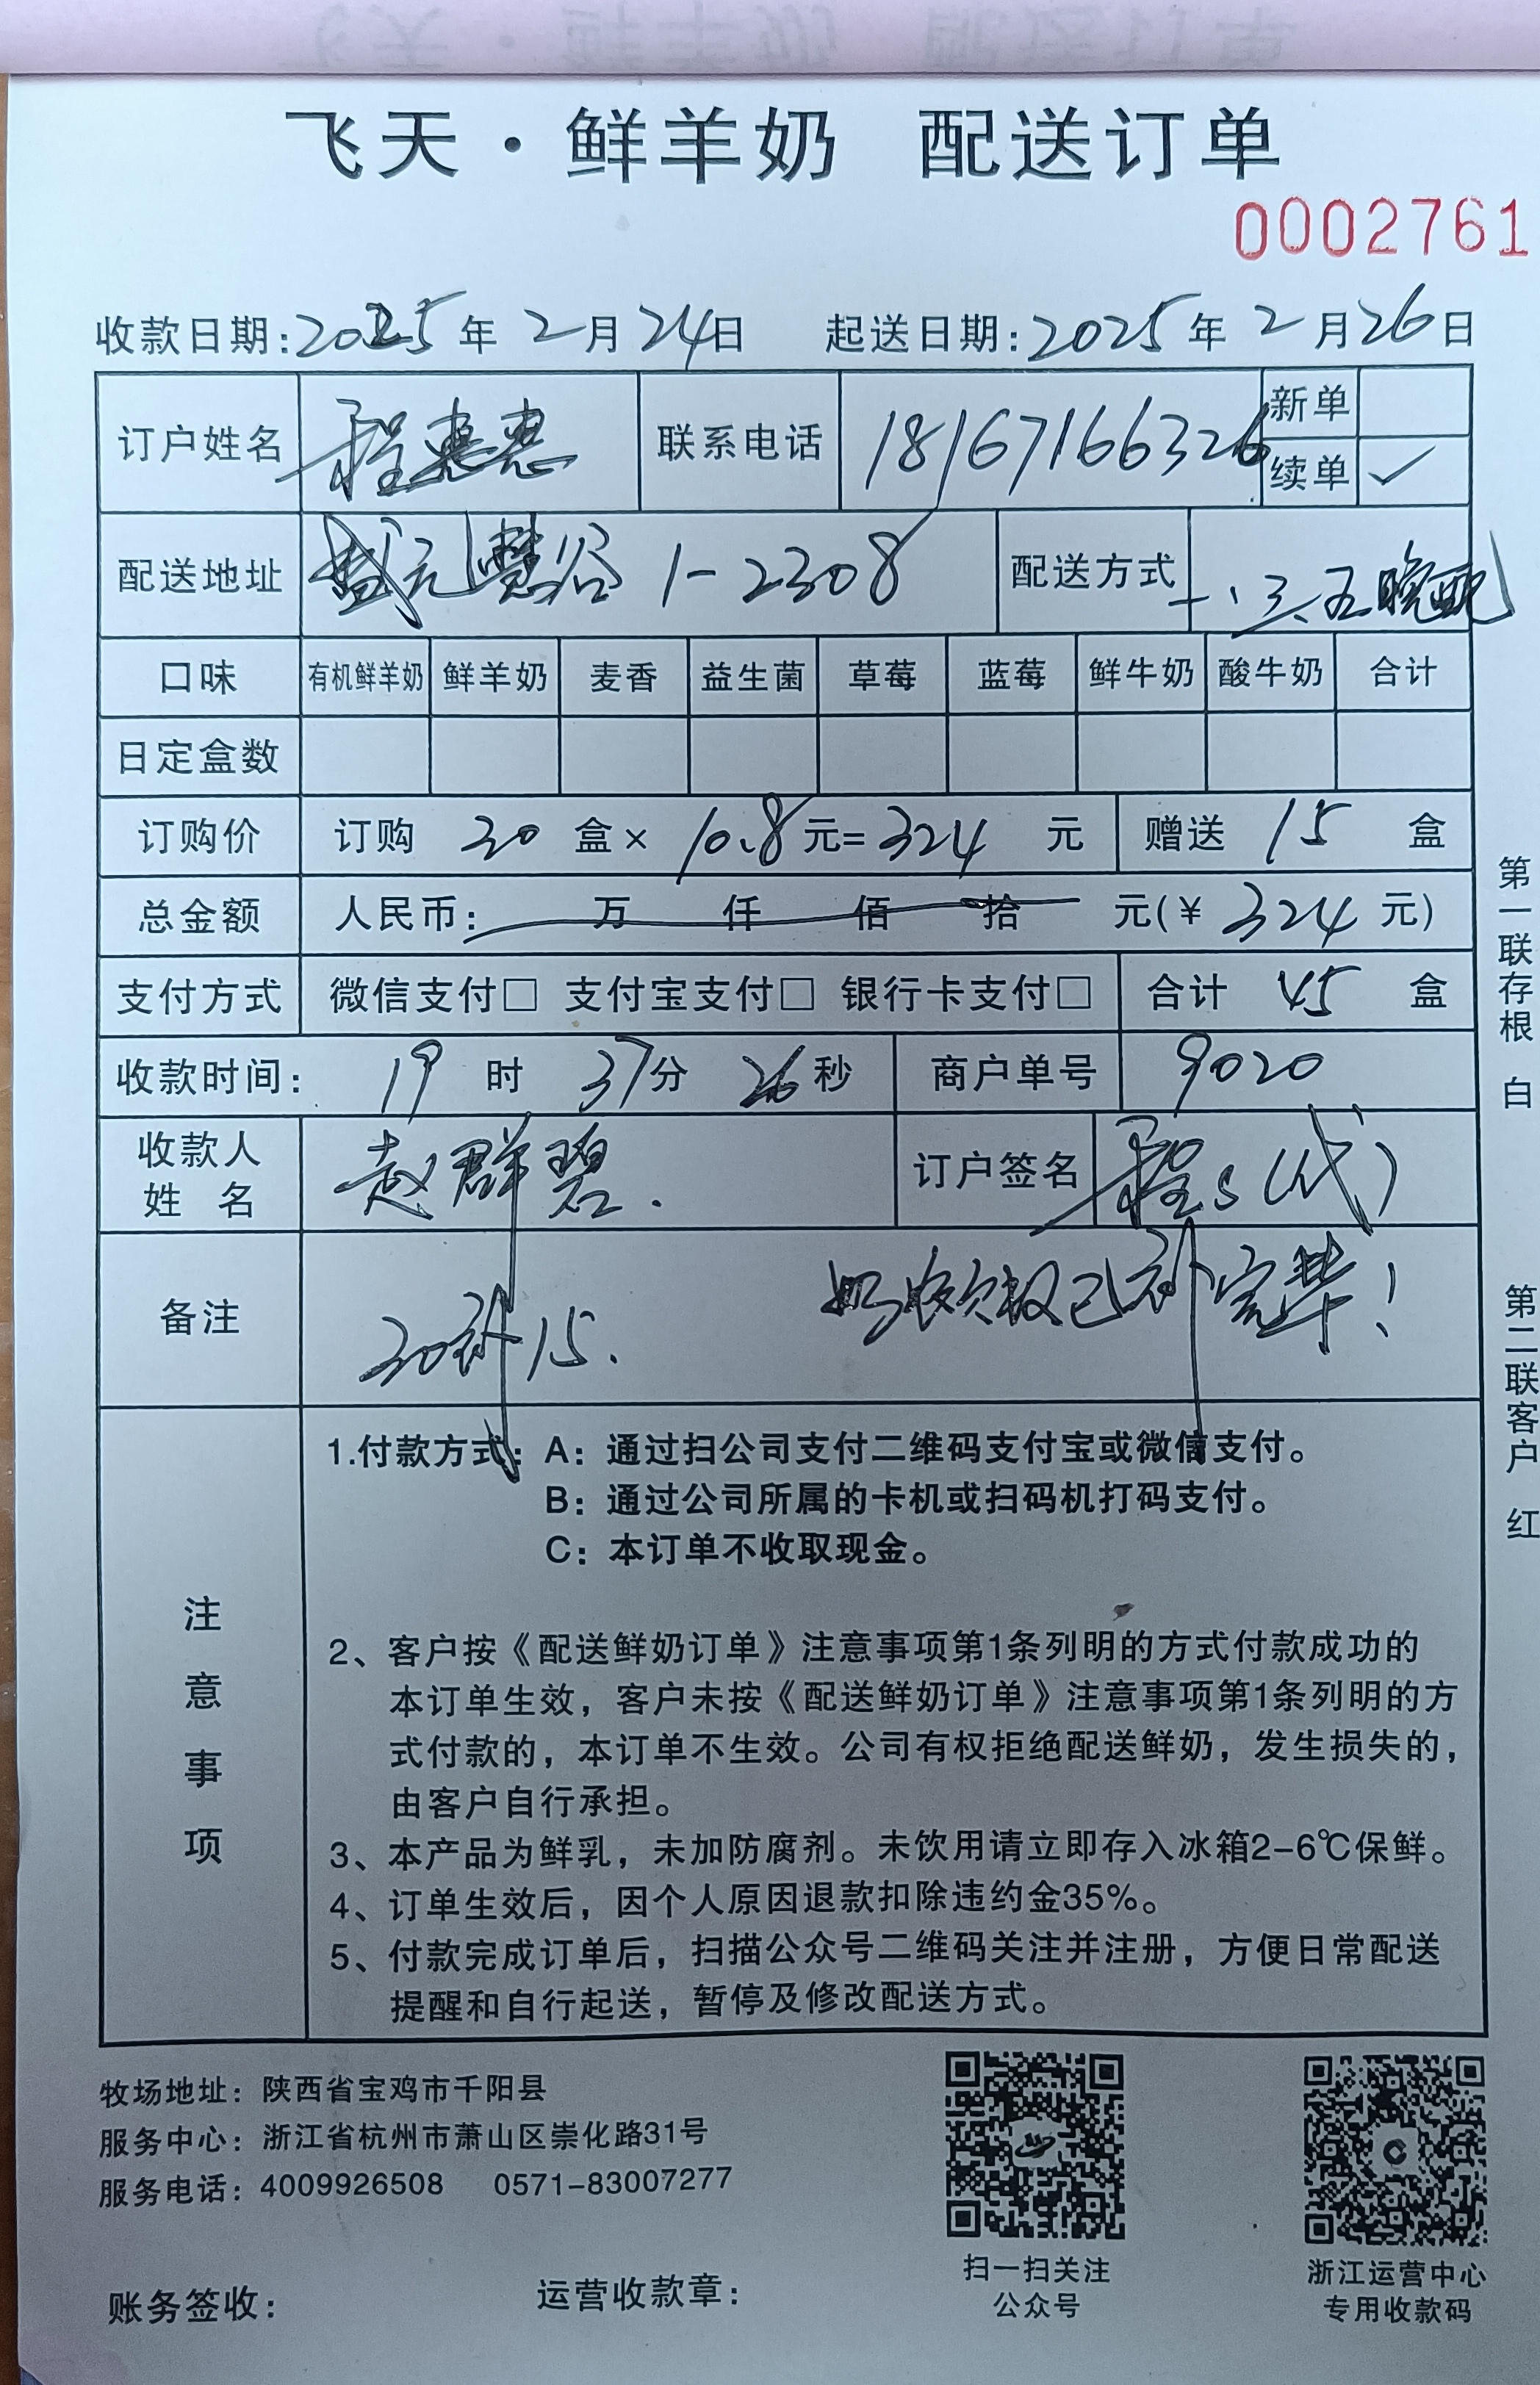 飞天·鲜羊奶 配送订单
0002761
收款日期:2025年2月24日 起送日期:2025年2月26日
订户姓名 程惠惠 联系电话 18167166326 新单
续单 ✓
配送地址 盛元慧谷 1-2308 配送方式 一.三.五晚配
口味 有机鲜羊奶 鲜羊奶 麦香 益生菌 草莓 蓝莓 鲜牛奶 酸牛奶 合计
日定盒数
订购价 订购 30 盒× 10.8元=324 元 赠送 15 盒
总金额 人民币: 万 仟 佰 拾 元(¥ 324 元)
支付方式 微信支付□ 支付宝支付□ 银行卡支付□ 合计 45 盒
收款时间: 19 时 37分 26秒 商户单号 9020
收款人
姓 名 赵群碧. 订户签名 程s(代)
备注 30补15. 奶 已补完毕!
注意事项
1.付款方式: A: 通过扫公司支付二维码支付宝或微信支付。
B: 通过公司所属的卡机或扫码机打码支付。
C: 本订单不收取现金。
2、客户按《配送鲜奶订单》注意事项第1条列明的方式付款成功的
本订单生效，客户未按《配送鲜奶订单》注意事项第1条列明的方
式付款的，本订单不生效。公司有权拒绝配送鲜奶，发生损失的，
由客户自行承担。
3、本产品为鲜乳，未加防腐剂。未饮用请立即存入冰箱2-6℃保鲜。
4、订单生效后，因个人原因退款扣除违约金35%。
5、付款完成订单后，扫描公众号二维码关注并注册，方便日常配送
提醒和自行起送，暂停及修改配送方式。
第一联存根 白
第二联客户 红
牧场地址: 陕西省宝鸡市千阳县
服务中心: 浙江省杭州市萧山区崇化路31号
服务电话: 4009926508 0571-83007277
扫一扫关注
公众号
浙江运营中心
专用收款码
账务签收: 运营收款章: